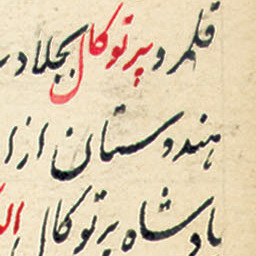 قلمرو پرتوکال بجلادت
هندوستان از ا
پادشاه پرتوکال ال